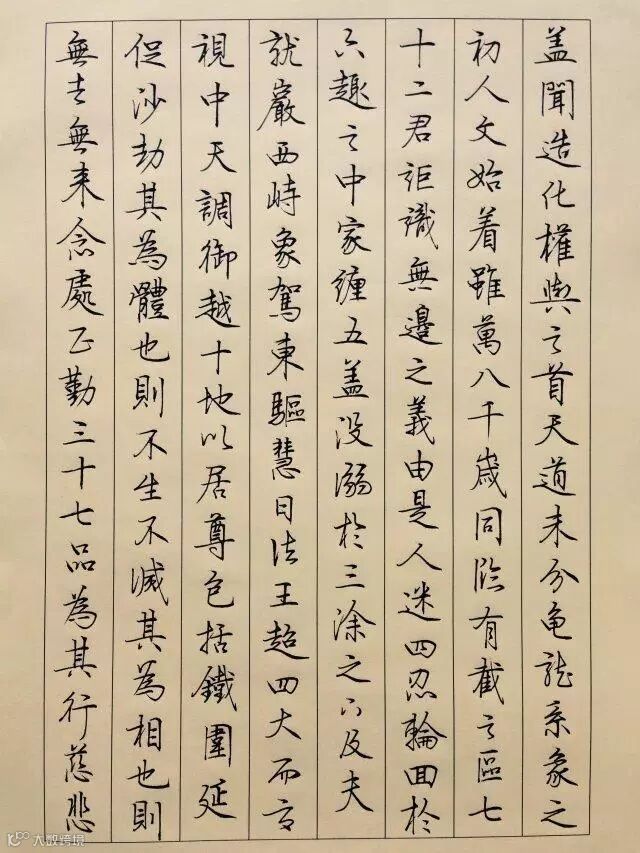 盖聞造化權輿之首天道未分龟龍系象之
初人文始着雖萬八千歲同臨有截之區七
十二君詎識無邊之義由是人迷四忍輪回於
六趣之中家纏五盖没溺於三涂之下及夫
鷲巖西峙象駕東驅慧日法王超四大而高
視中天調御越十地以居尊包括鐵圍延
促沙劫其為體也則不生不滅其為相也則
無去無来念處正勤三十七品為其行慈悲
大数跨境